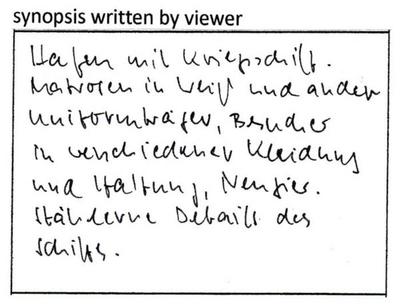 synopsis written by viewer
Hafen mit Kriegsschiff.
Matrosen in Weiß und andere
Uniformträger, Besucher
in verschiedener Kleidung
und Haltung, Neugier.
Stählerne Details des
Schiffs.